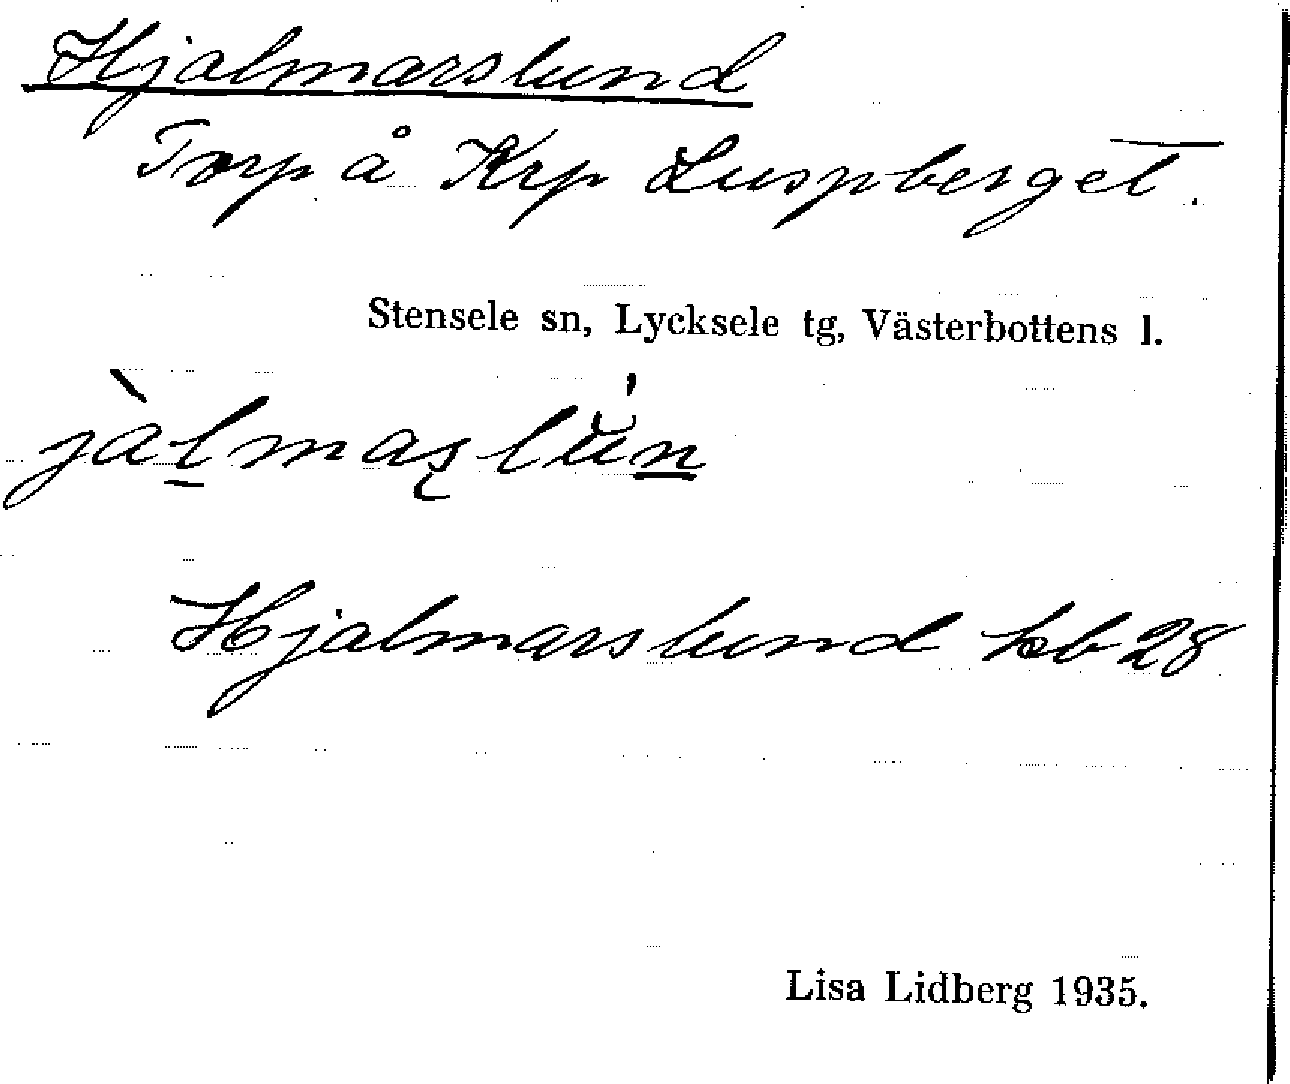 Hjalmarslund
Torp å Krp Luspberget.
Stensele sn, Lycksele tg, Västerbottens l.
jàl̲maş lu̇́n̲
Hjalmarslund kb 28
Lisa Lidberg 1935.